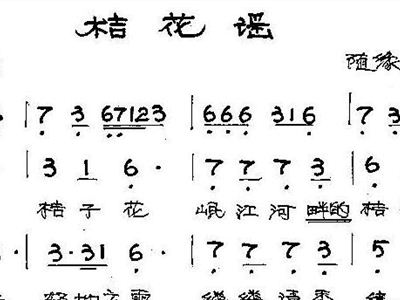 桔花谣
随缘
· | 7 3 67123 | 666 316 | 7 3
· | 3 1 6 · | 7 7 7 3 | 6
桔子花 岷江河畔的 桔
· | 3·31 6 · | 7 7 7 3 | 5